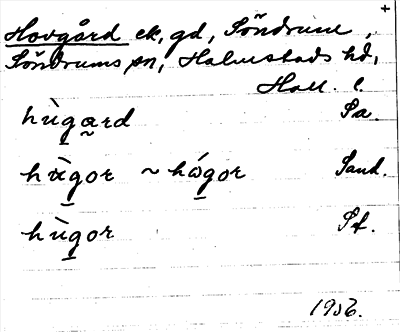 +
Hovgård ek, gd, Söndrum,
Söndrums sn, Halmstads hd,
Hall. l.
hùgard Sa.
hùgor ~ hǿgor Sand.
hùgor St.
1956.